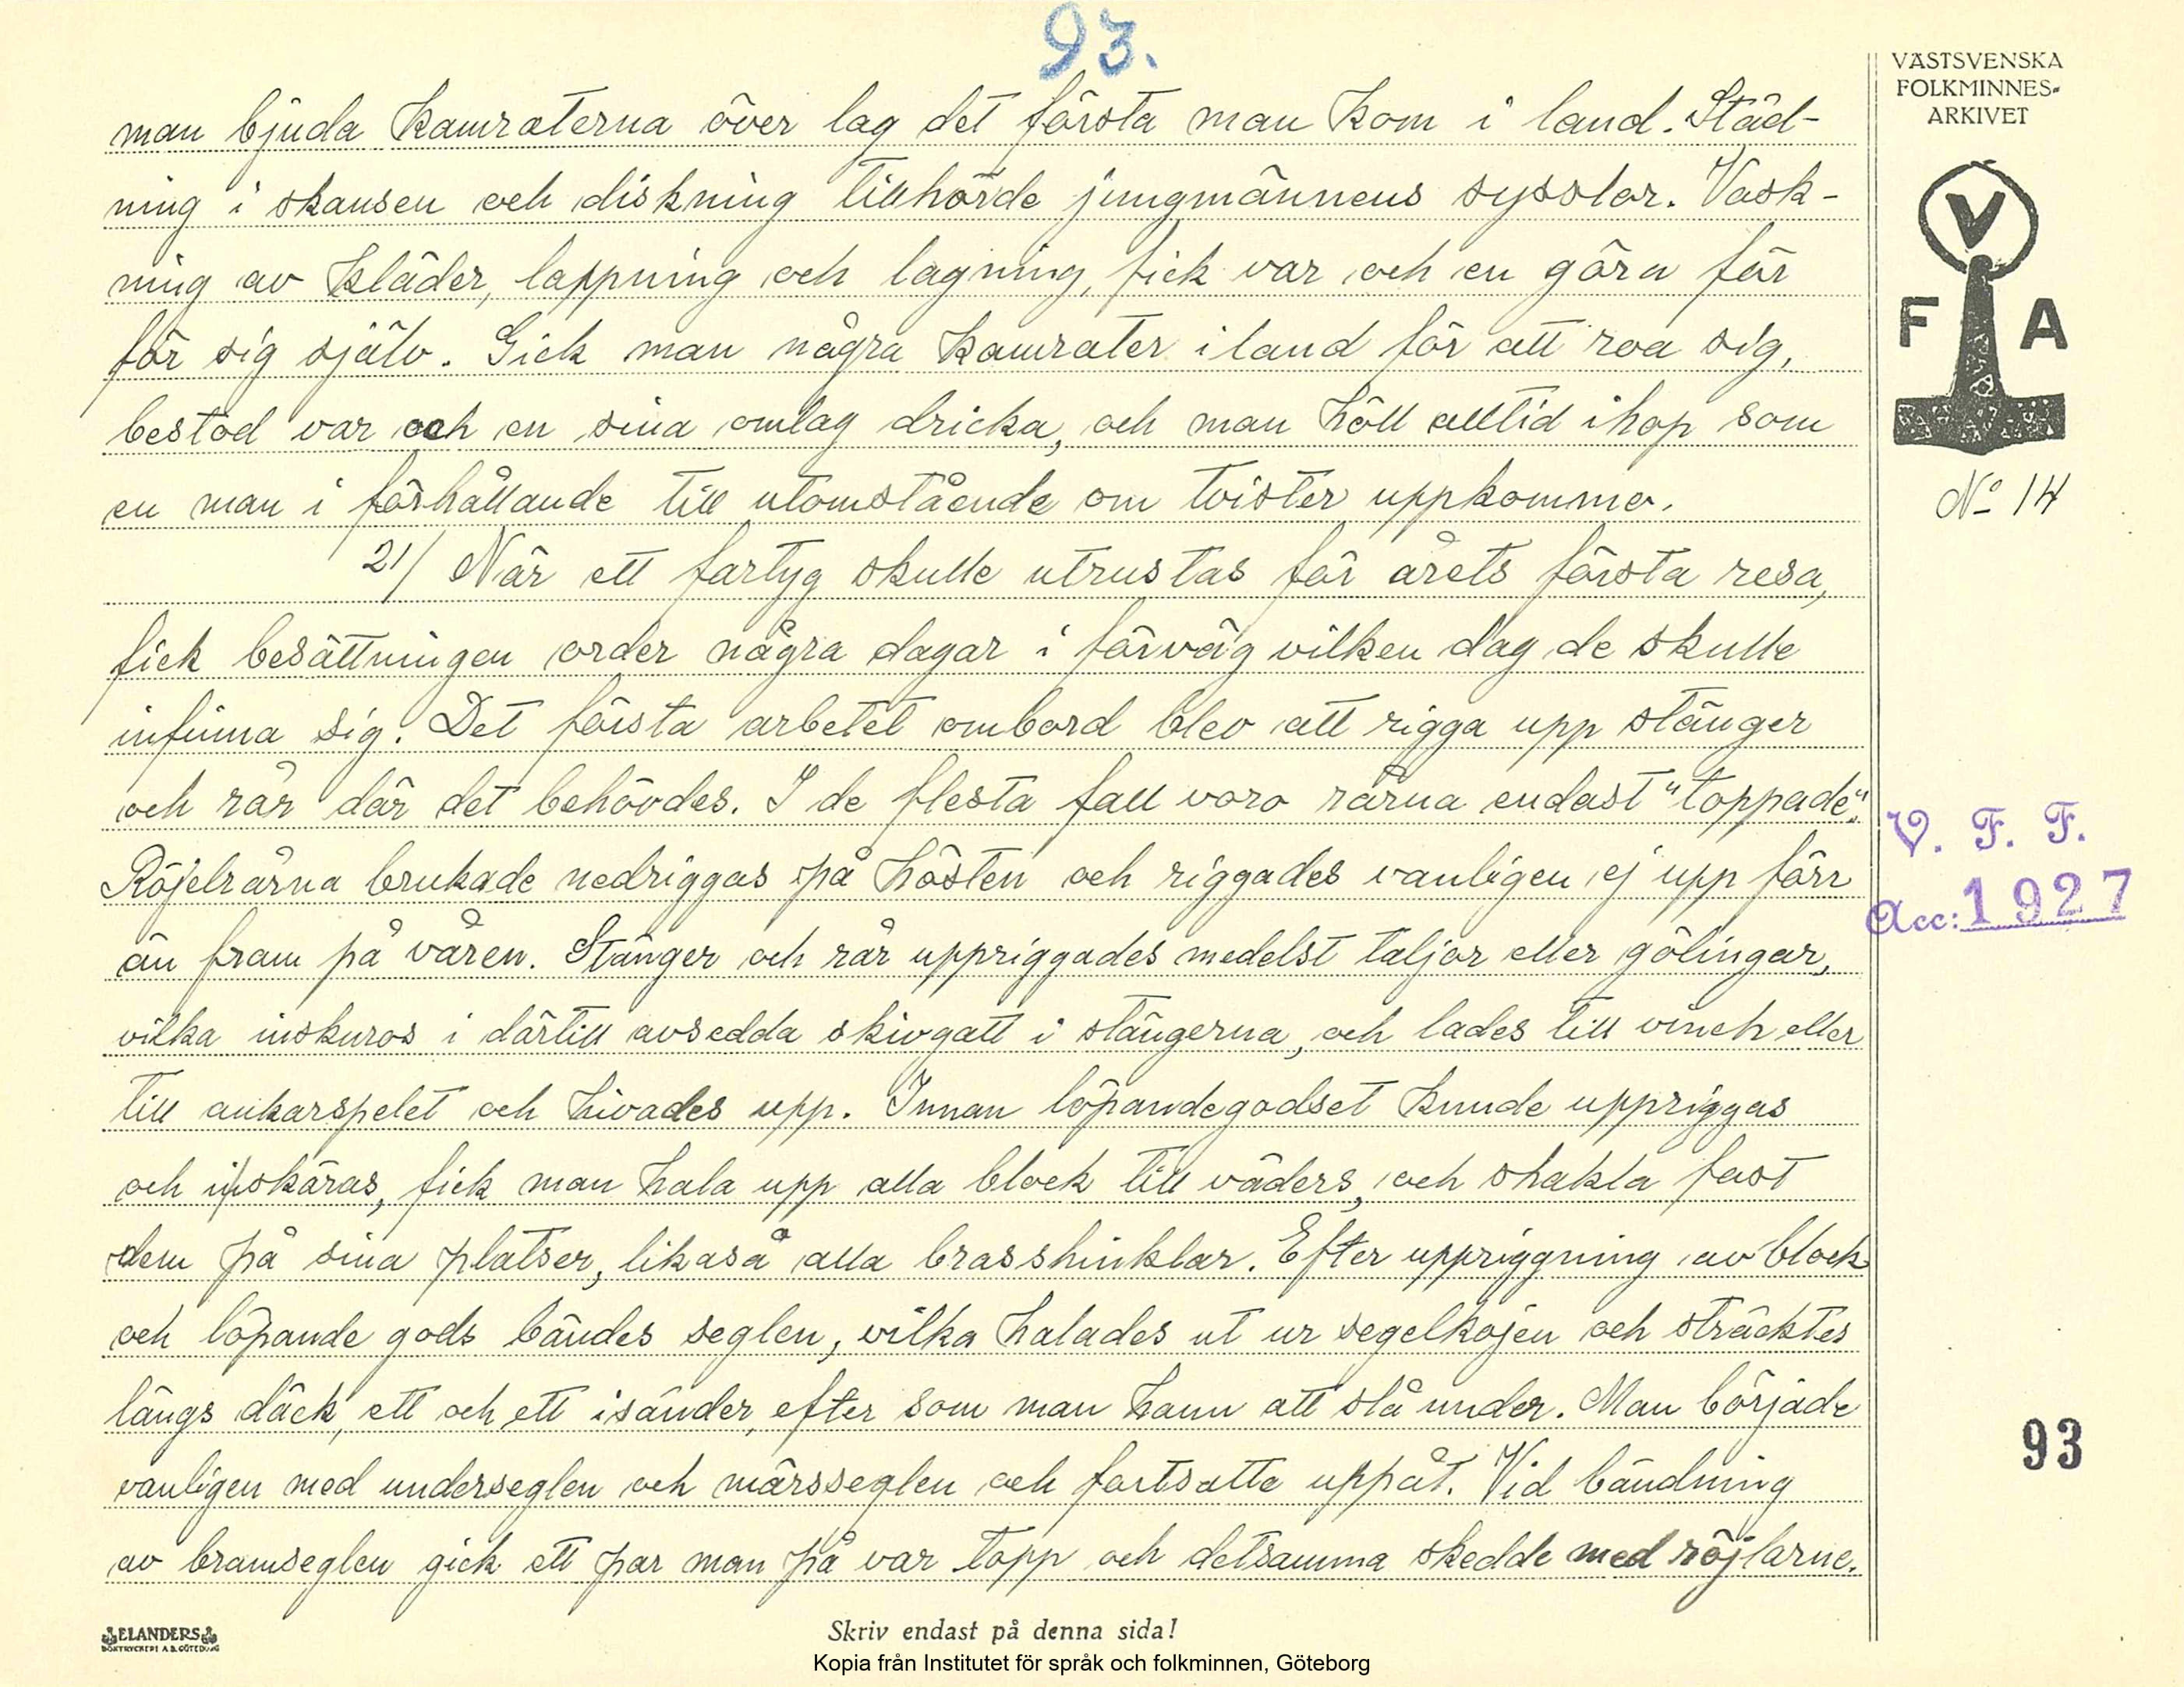 93.
man bjuda kamraterna över lag det första man kom i land. Städ-
ning i skansen och diskning tillhörde jungmännens sysslor. Vask-
ning av kläder, lappning och lagning, fick var och en göra för
för sig själv. Gick man några kamrater i land för att roa sig,
bestod var och en sina omlag dricka, och man höll alltid ihop som
en man i förhållande till utomstående om tvister uppkommo.
21/ När ett fartyg skulle utrustas för årets första resa,
fick besättningen order några dagar i förväg vilken dag de skulle
infinna sig. Det första arbetet ombord blev att rigga upp stänger
och rår där det behövdes. I de flesta fall voro rårna endast "toppade".
Röjelrårna brukade nedriggas på hösten och riggades vanligen ej upp förr
än fram på våren. Stänger och rår uppriggades medelst taljor eller gölingar,
vilka inskuros i därtill avsedda skivgatt i stängerna, och lades till vinch eller
till ankarspelet och hivades upp. Innan löpandegodset kunde uppriggas
och inskäras, fick man hala upp alla block till väders, och shakla fast
dem på sina platser, likaså alla brasshinklar. Efter uppriggning av block
och löpande gods bändes seglen, vilka halades ut ur segelkojen och sträcktes
längs däck, ett och ett isänder, efter som man hann att slå under. Man började
vanligen med underseglen och märsseglen och fortsatte uppåt. Vid bändning
av bramseglen gick ett par man på var topp och detsamma skedde med röjlarne.
VÄSTSVENSKA
FOLKMINNES-
ARKIVET
V
F A
No 14
V. F. F.
Acc: 1927
93
ELANDERS
BOKTRYCKERI A.B. GÖTEBORG
Skriv endast på denna sida!
Kopia från Institutet för språk och folkminnen, Göteborg